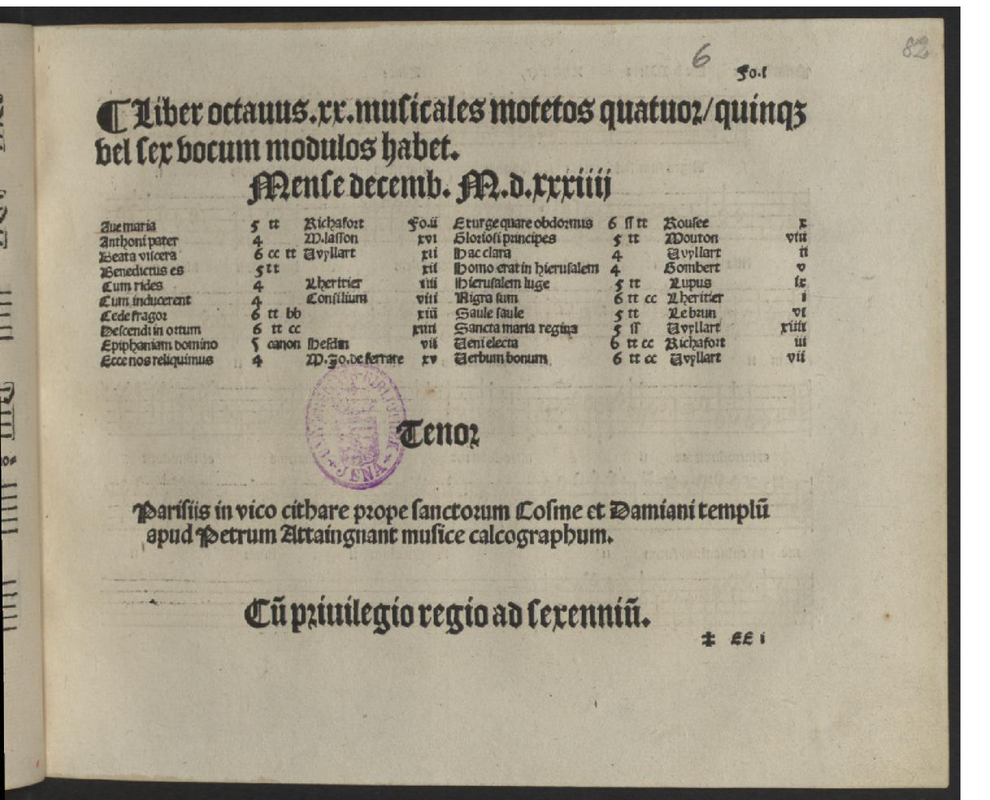 6
82
Fo.i
¶ Liber octauus.xx.musicales motetos quatuor/quinqꝫ
vel sex vocum modulos habet.
Mense decemb. M.d.xxxiiij
Aue maria 5 tt Richafort Fo.ii
Anthoni pater 4 M.lasson xvi
Beata viscera 6 cc tt Vuyllart xii
Benedictus es 5 tt xii
Cum rides 4 Lheritier iiii
Cum inducerent 4 Consilium viii
Cede fragor 6 tt bb xiii
Descendi in ortum 6 tt cc xiiii
Epiphaniam domino 5 canon Hesdin vii
Ecce nos reliquimus 4 M.Jo.de ferrare xv
Exurge quare obdormis 6 ſſ tt Rousee x
Gloriosi principes 5 tt Mouton viii
Hac clara 4 Vuyllart ii
Homo erat in hierusalem 4 Gombert v
Hierusalem luge 5 tt Lupus ix
Nigra sum 6 tt cc Lheritier i
Saule saule 5 tt Le brun vi
Sancta maria regina 5 ſſ Vuyllart xiiii
Veni electa 6 tt cc Richafort iii
Verbum bonum 6 tt cc Vuyllart vii
Tenor
JENA
Parisiis in vico cithare prope sanctorum Cosme et Damiani templū
apud Petrum Attaingnant musice calcographum.
Cū priuilegio regio ad sexenniū.
‡ EE i